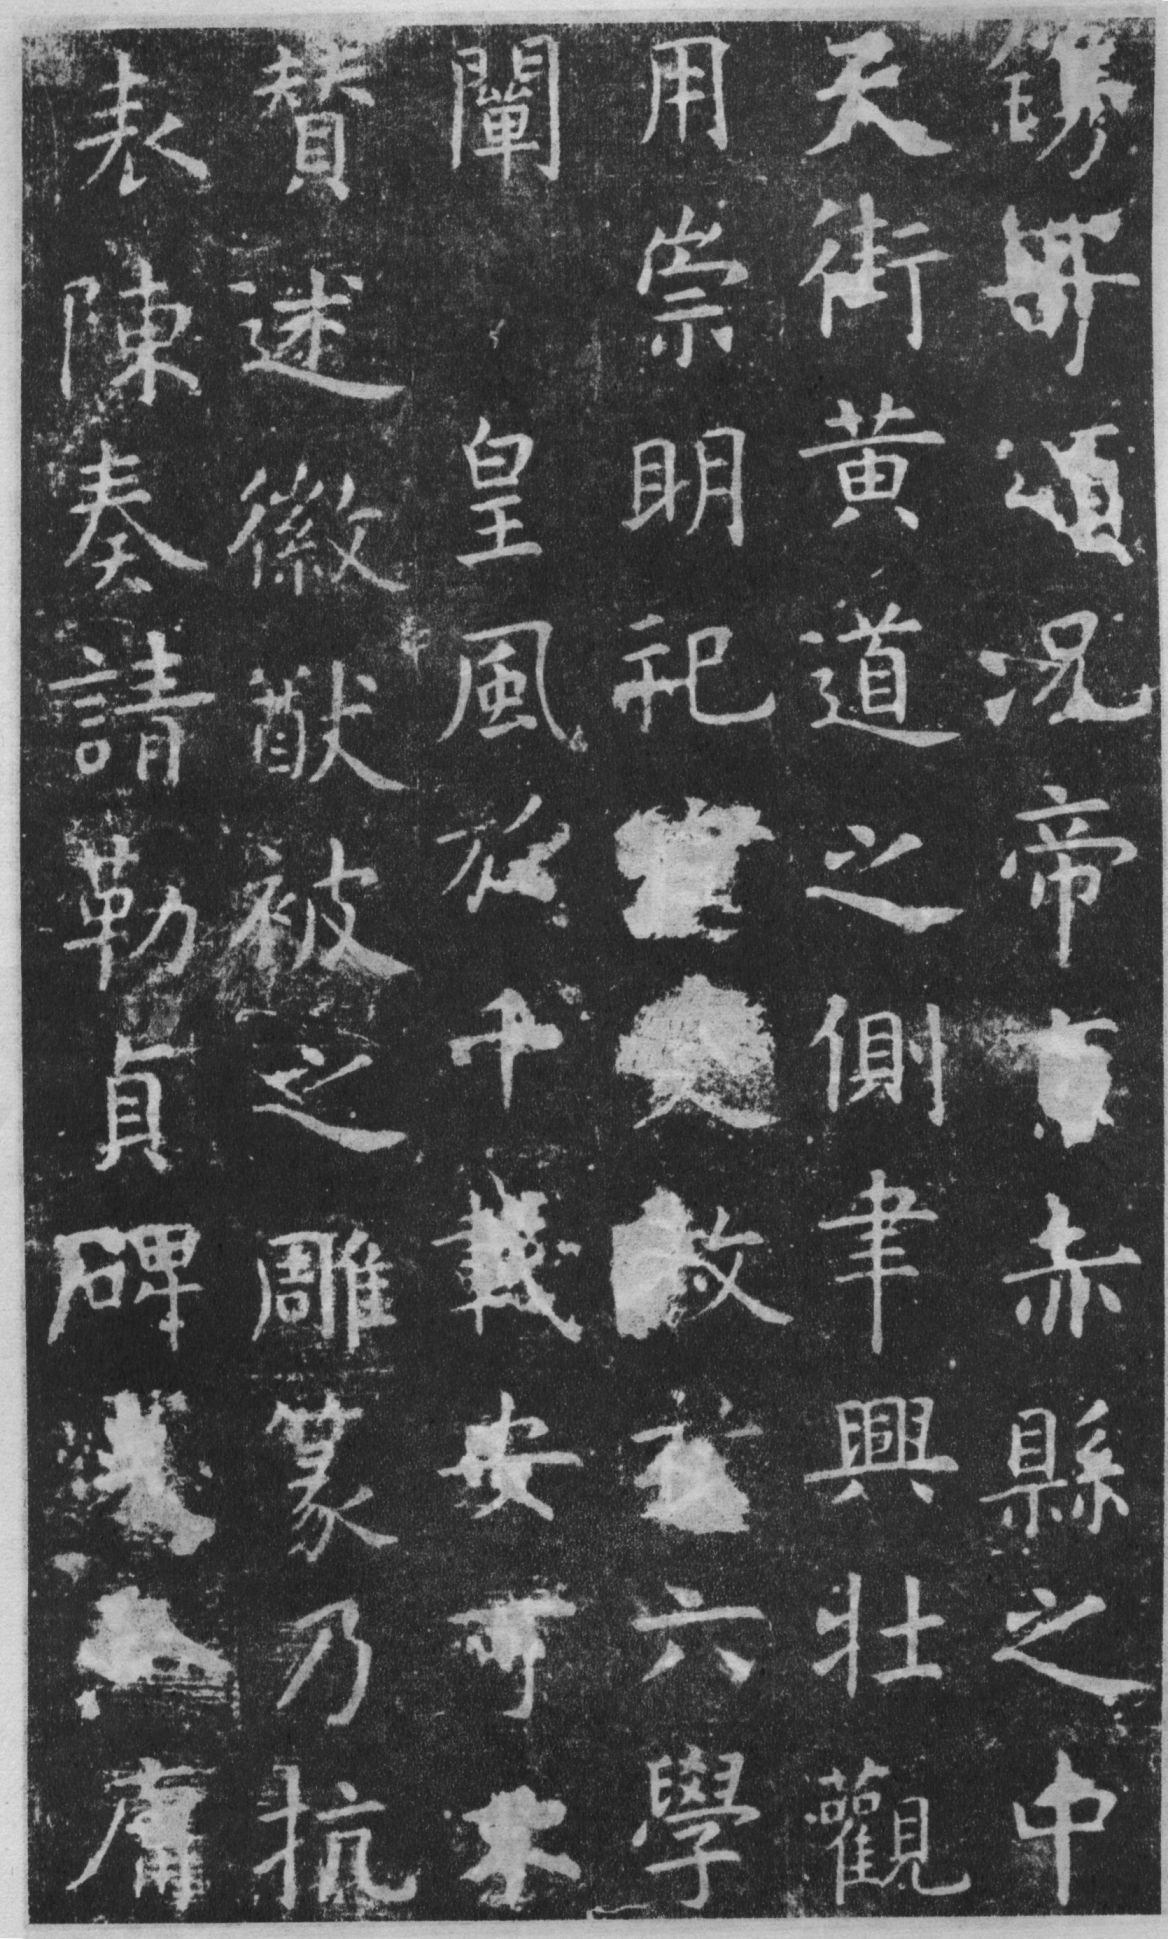 鐫頌況帝京赤縣之中
天街黃道之側聿興壯觀
用崇明祀宣文教於六學
闡皇風於千載安可不
贊述徽猷被之雕篆乃抗
表陳奏請勒貞碑庸